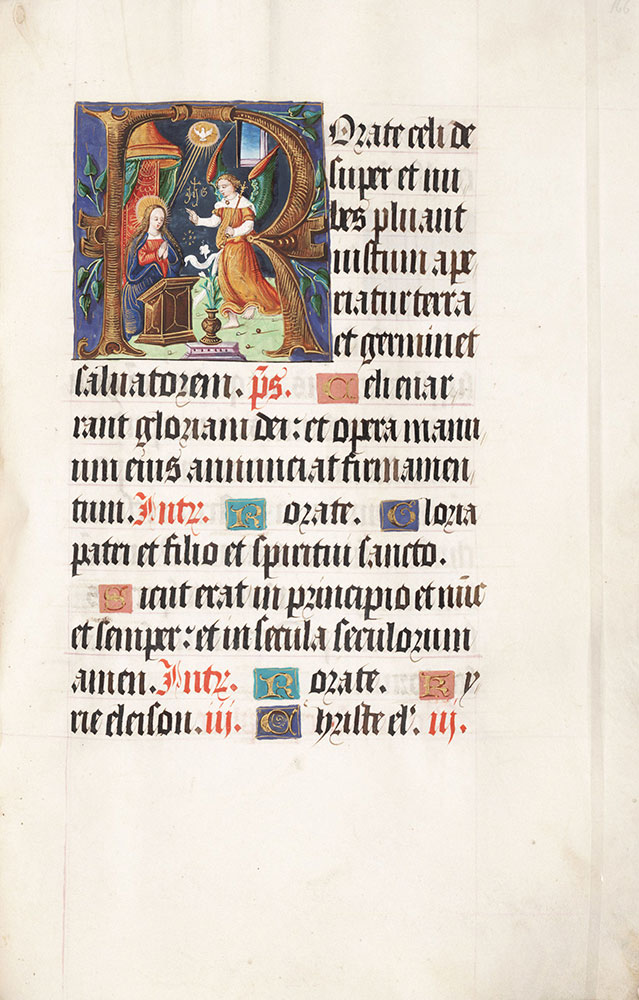 166
ROrate celi de
super et nu
bes pluant
iustum ape
riatur terra
et germinet
saluatorem. ps. Celi enar
rant gloriam dei: et opera manu
um eius annunciat firmamen
tum. Intr. Rorate. Gloria
patri et filio et spiritui sancto.
Sicut erat in principio et nūc
et semper: et in secula seculorum
amen. Intr. Rorate. Ky
rie eleison. iij. Chriſte el'. iij.